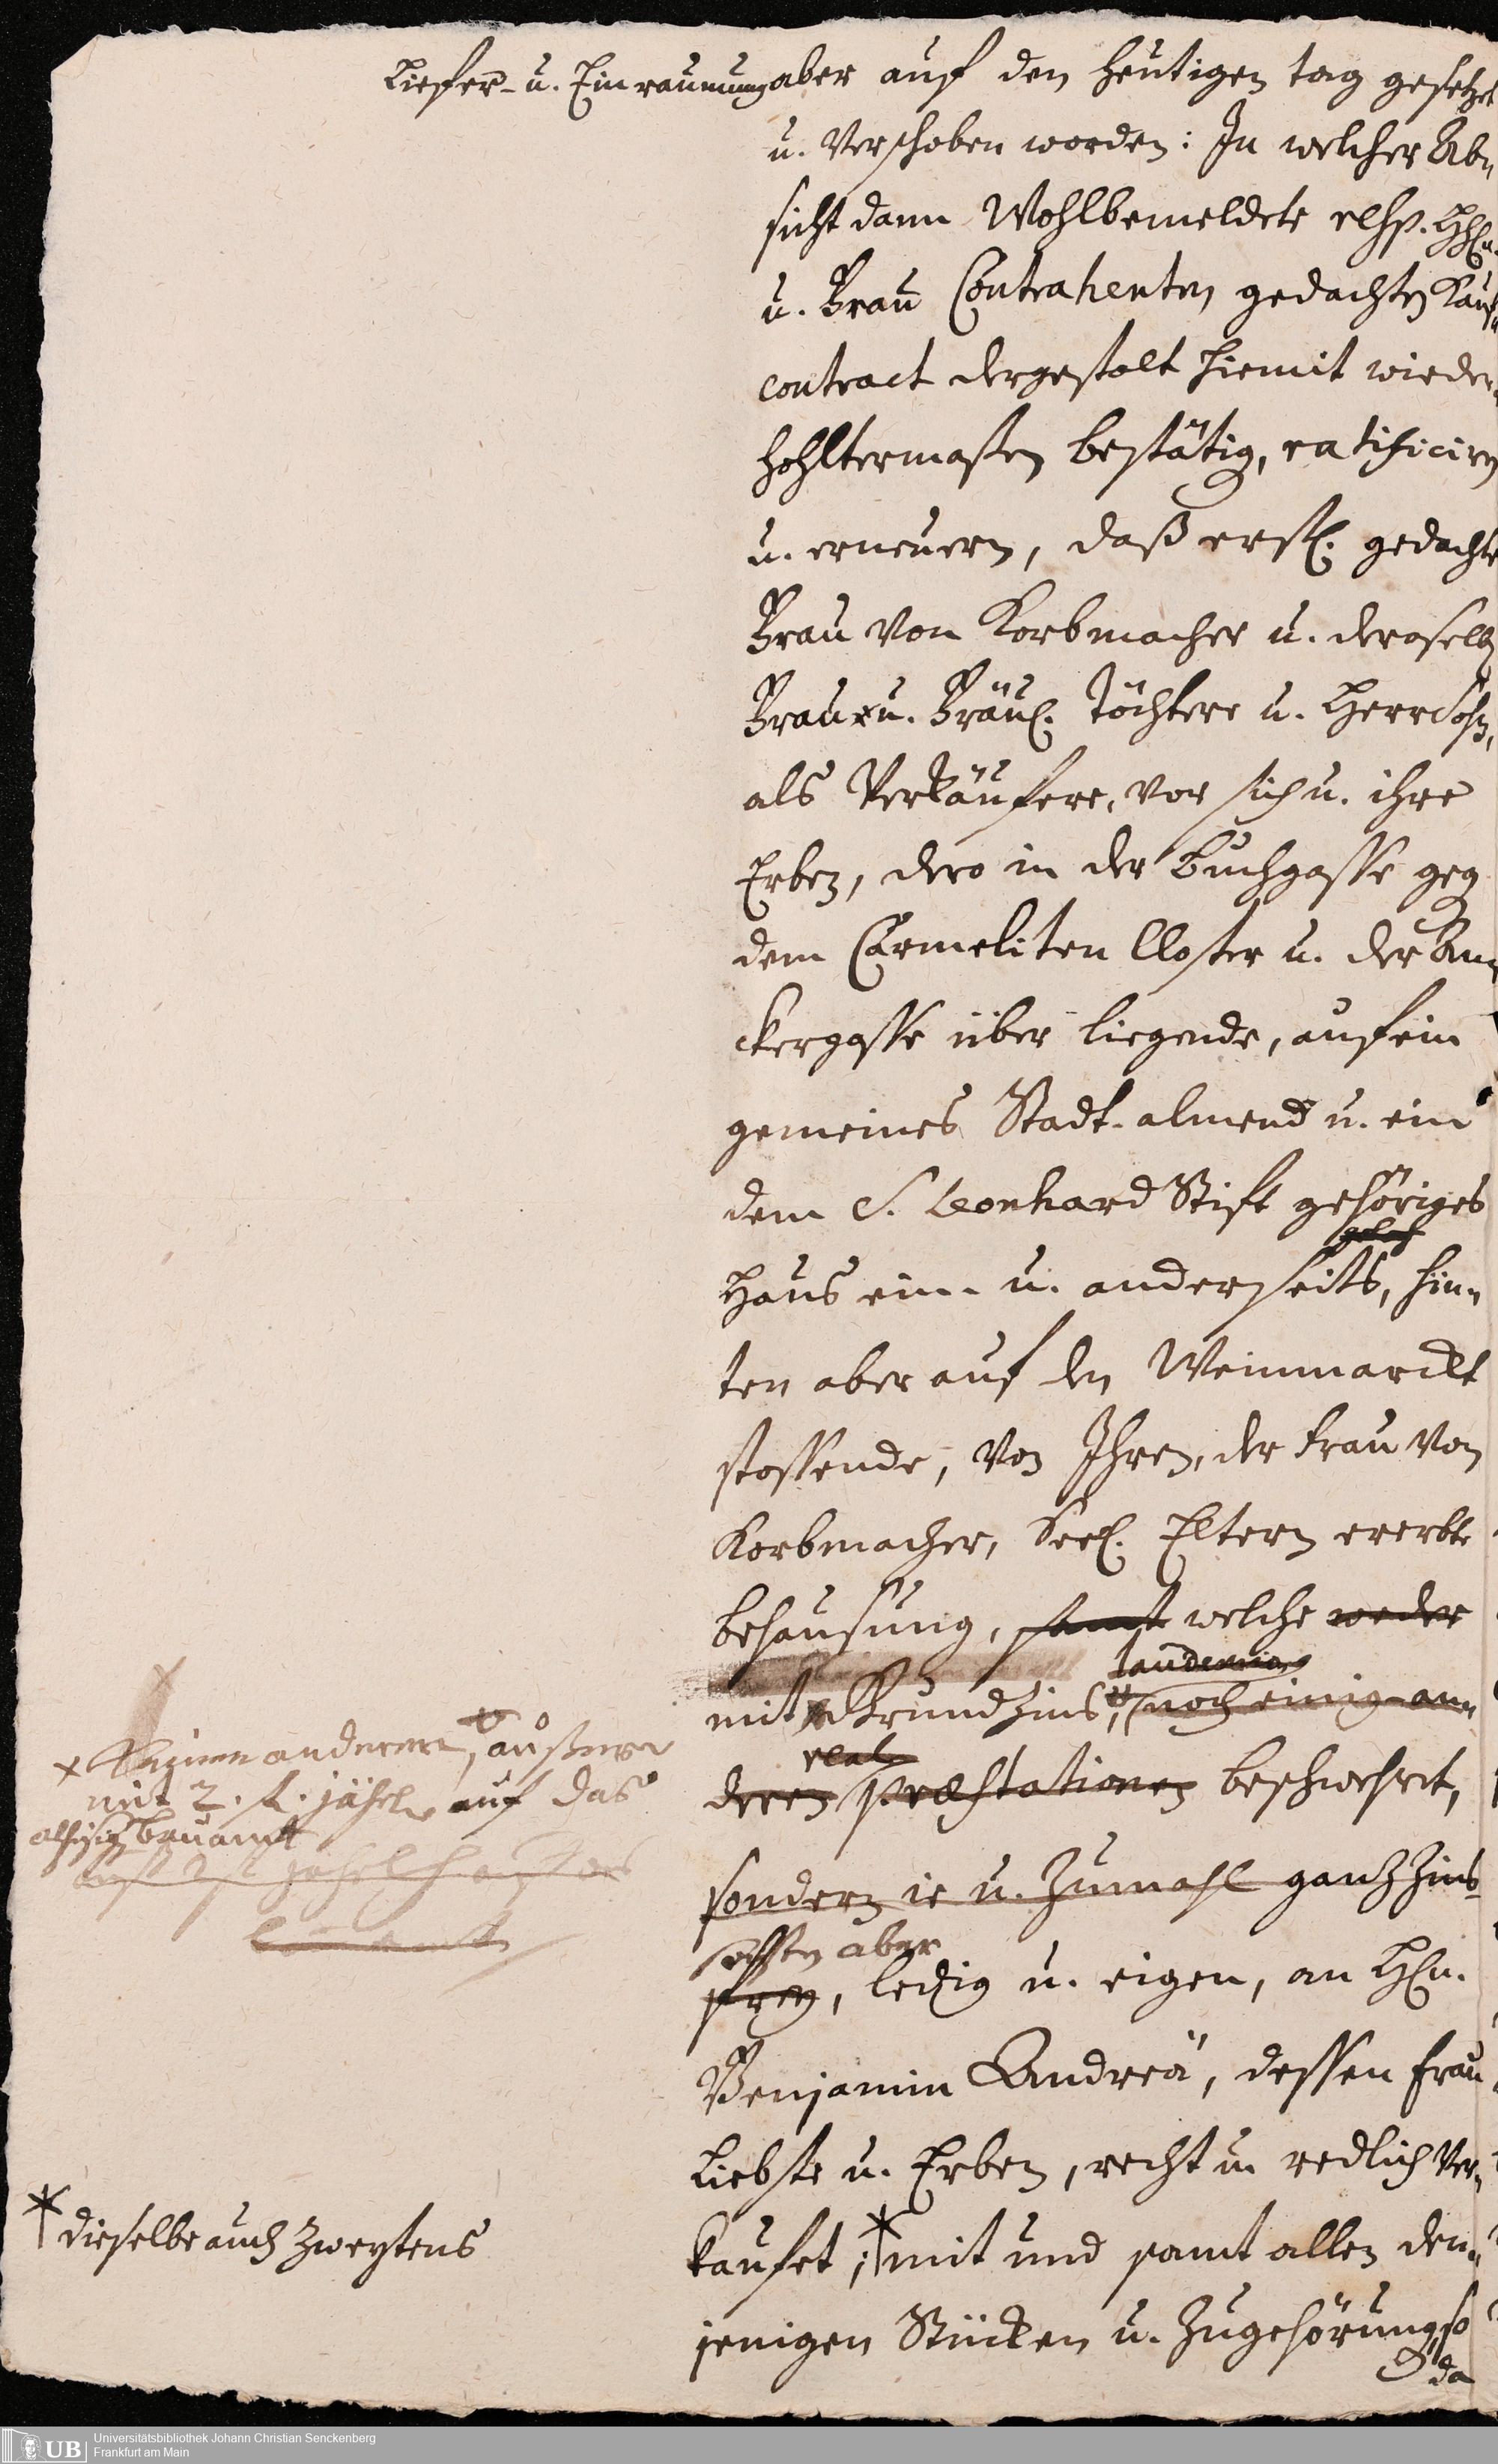 Liefer- u. Einraumung aber auf den heutigen tag gesetzet
u. Verschoben worden: In welcher Ab-
sicht dann Wohlbemeldete resp. HHn.
u. Frau Contrahenten gedachten Kauf-
contract dergestalt hiemit wieder-
hohltermaßen bestätig, ratificiren
u. erneuern, daß erstl. gedachte
Frau von Korbmacher u. deroselb
Frau u. Fräul. Töchtere u. Herr Sohn,
als Verkäufere, vor sich u. ihre
Erben, dero in der Buchgasse geg
dem Carmeliten Closter u. der An-
ckergasse über liegende, auf ein
gemeines Stadt-almend u. ein
dem S. Leonhard Stift gehöriges
Haus ein- u. anderseits, hin-
ten aber auf den Weinmarckt
stossende, von Ihren, der Frau von
Korbmacher, Seel. Eltern ererbte
behausung, samt welche weder
laudemium
mit Grundzins, noch einig an-
real
deren præstationen beschwehrt,
sondern ie u. zumahl gantz Zins-
sonsten aber
frey, ledig u. eigen, an Hn.
Benjamin Andreä, dessen Frau
Liebste u. Erben, recht u. redlich ver-
kaufet; * mit und samt allen den-
jenigen Stücken u. Zugehörung, so
da
x keinem anderen, außer
mit 2. f. jährl. auf das
bauamt
* dieselbe auch zweytens
UB
Universitätsbibliothek Johann Christian Senckenberg
Frankfurt am Main